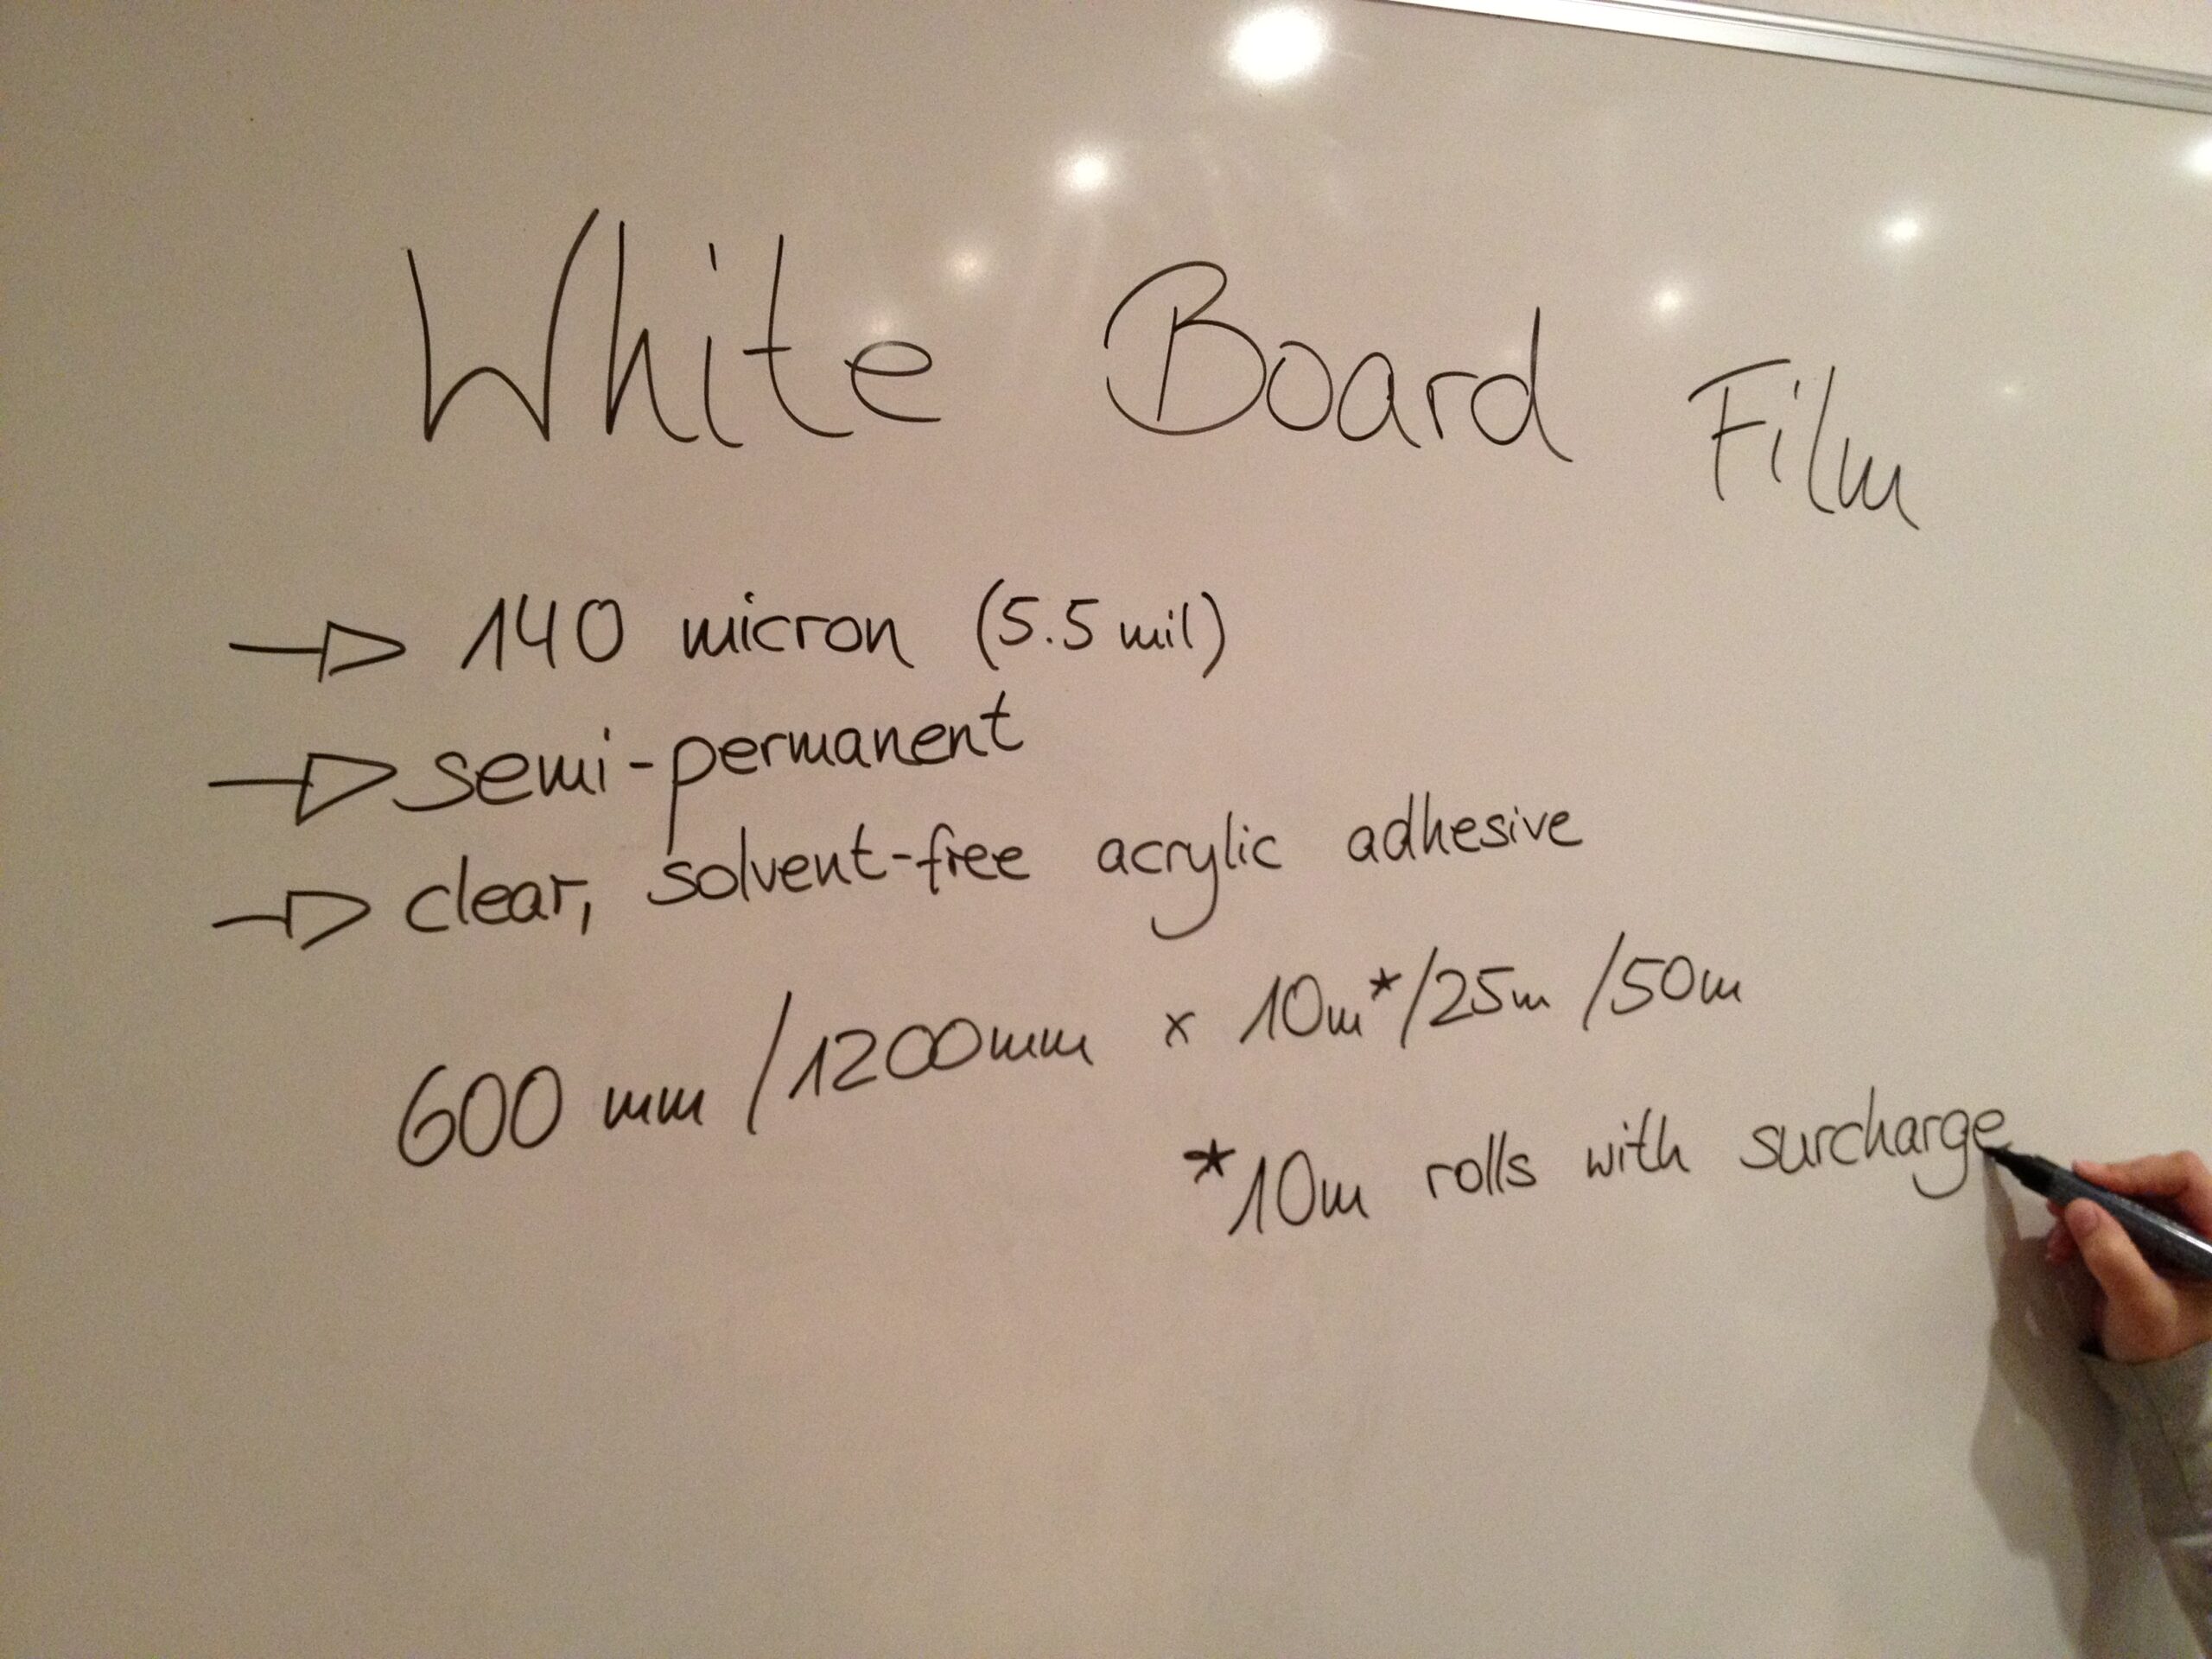 White Board Film
→ 140 micron (5.5 mil)
→ semi-permanent
→ clear, solvent-free acrylic adhesive
600 mm / 1200mm x 10m*/25m /50m
*10m rolls with surcharge